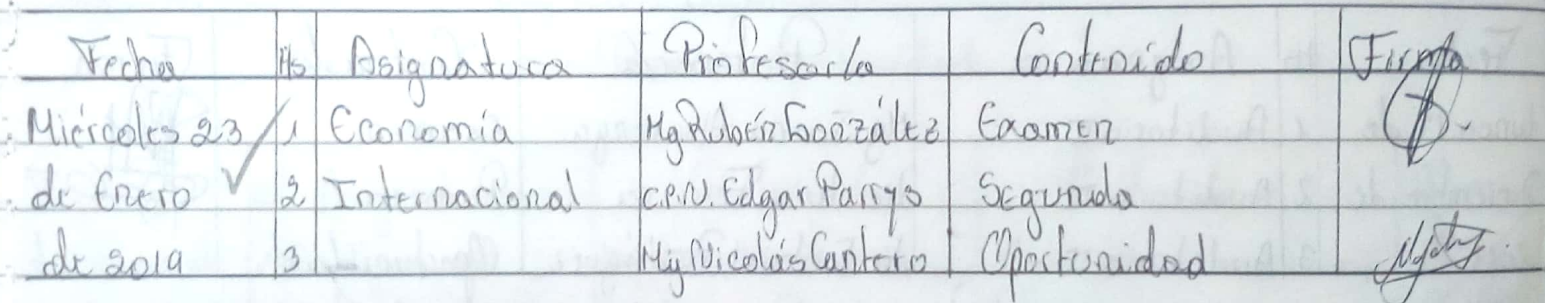 Fecha Hs Asignatura Profesor/a Contenido Firma
Miércoles 23 1 Economía Mg Rubén González Examen
de Enero 2 Internacional C.P.N. Edgar Parrys Segunda
de 2019 3 Mg Nicolás Cantero Oportunidad